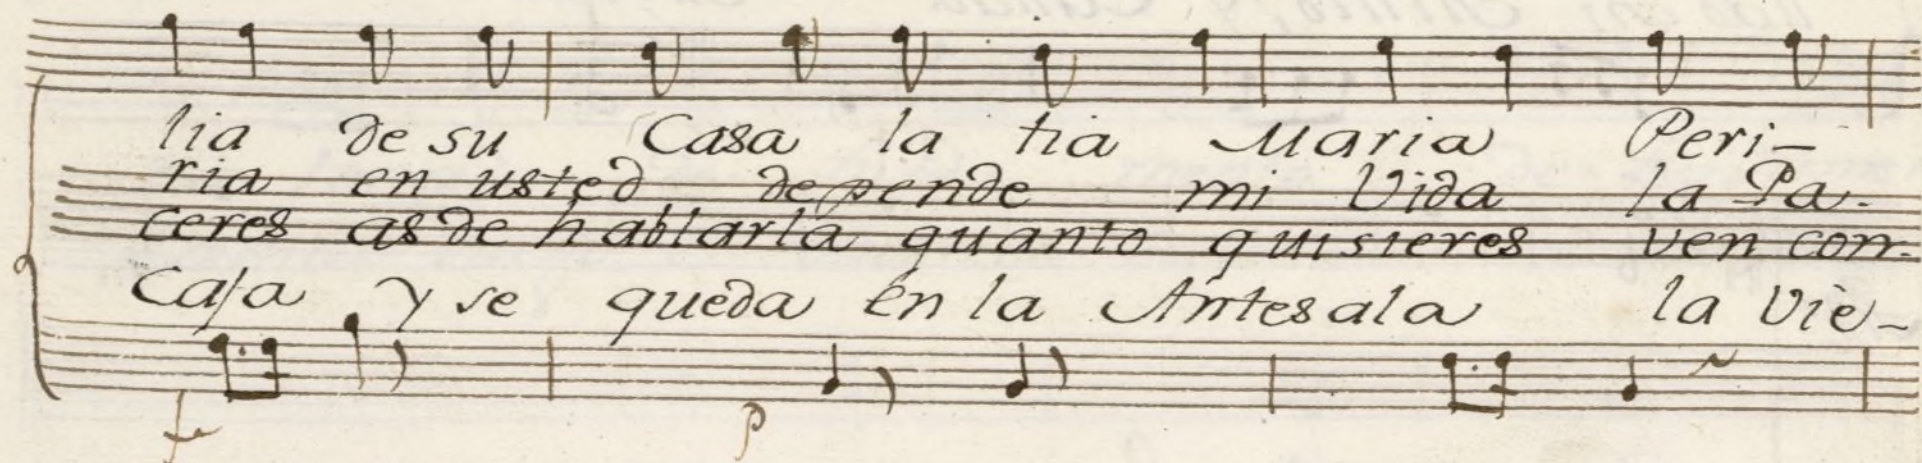 lia de su Casa la tia Maria Peri-
ria en usted depende mi Vida la Pa-
ceres as de hablarla quanto quisieres ven con-
Casa y se queda en la Antesala la Vie-
f p